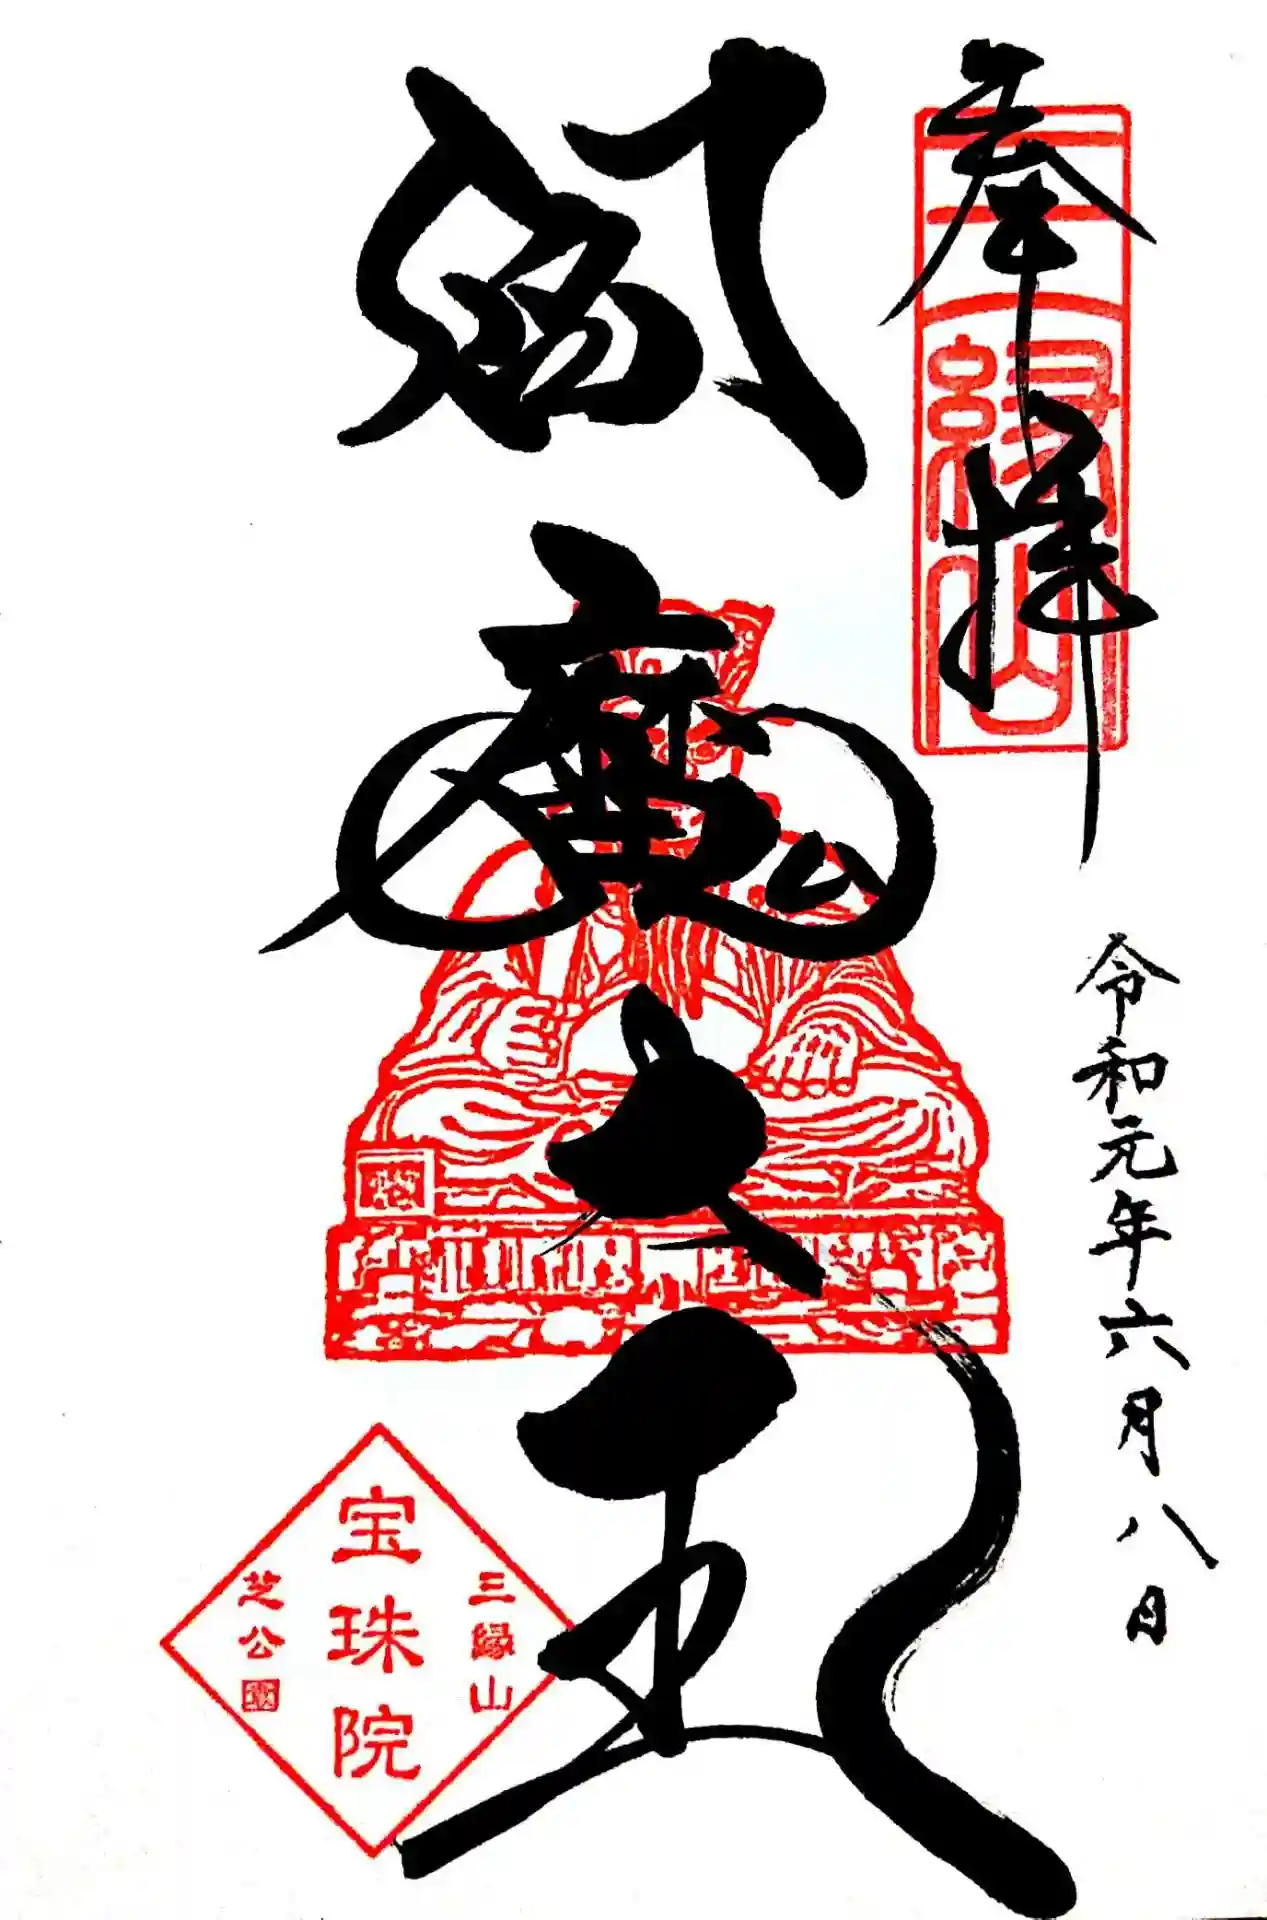 奉拝
三縁山
令和元年六月八日
閻魔大王
三縁山
宝珠院
芝公園